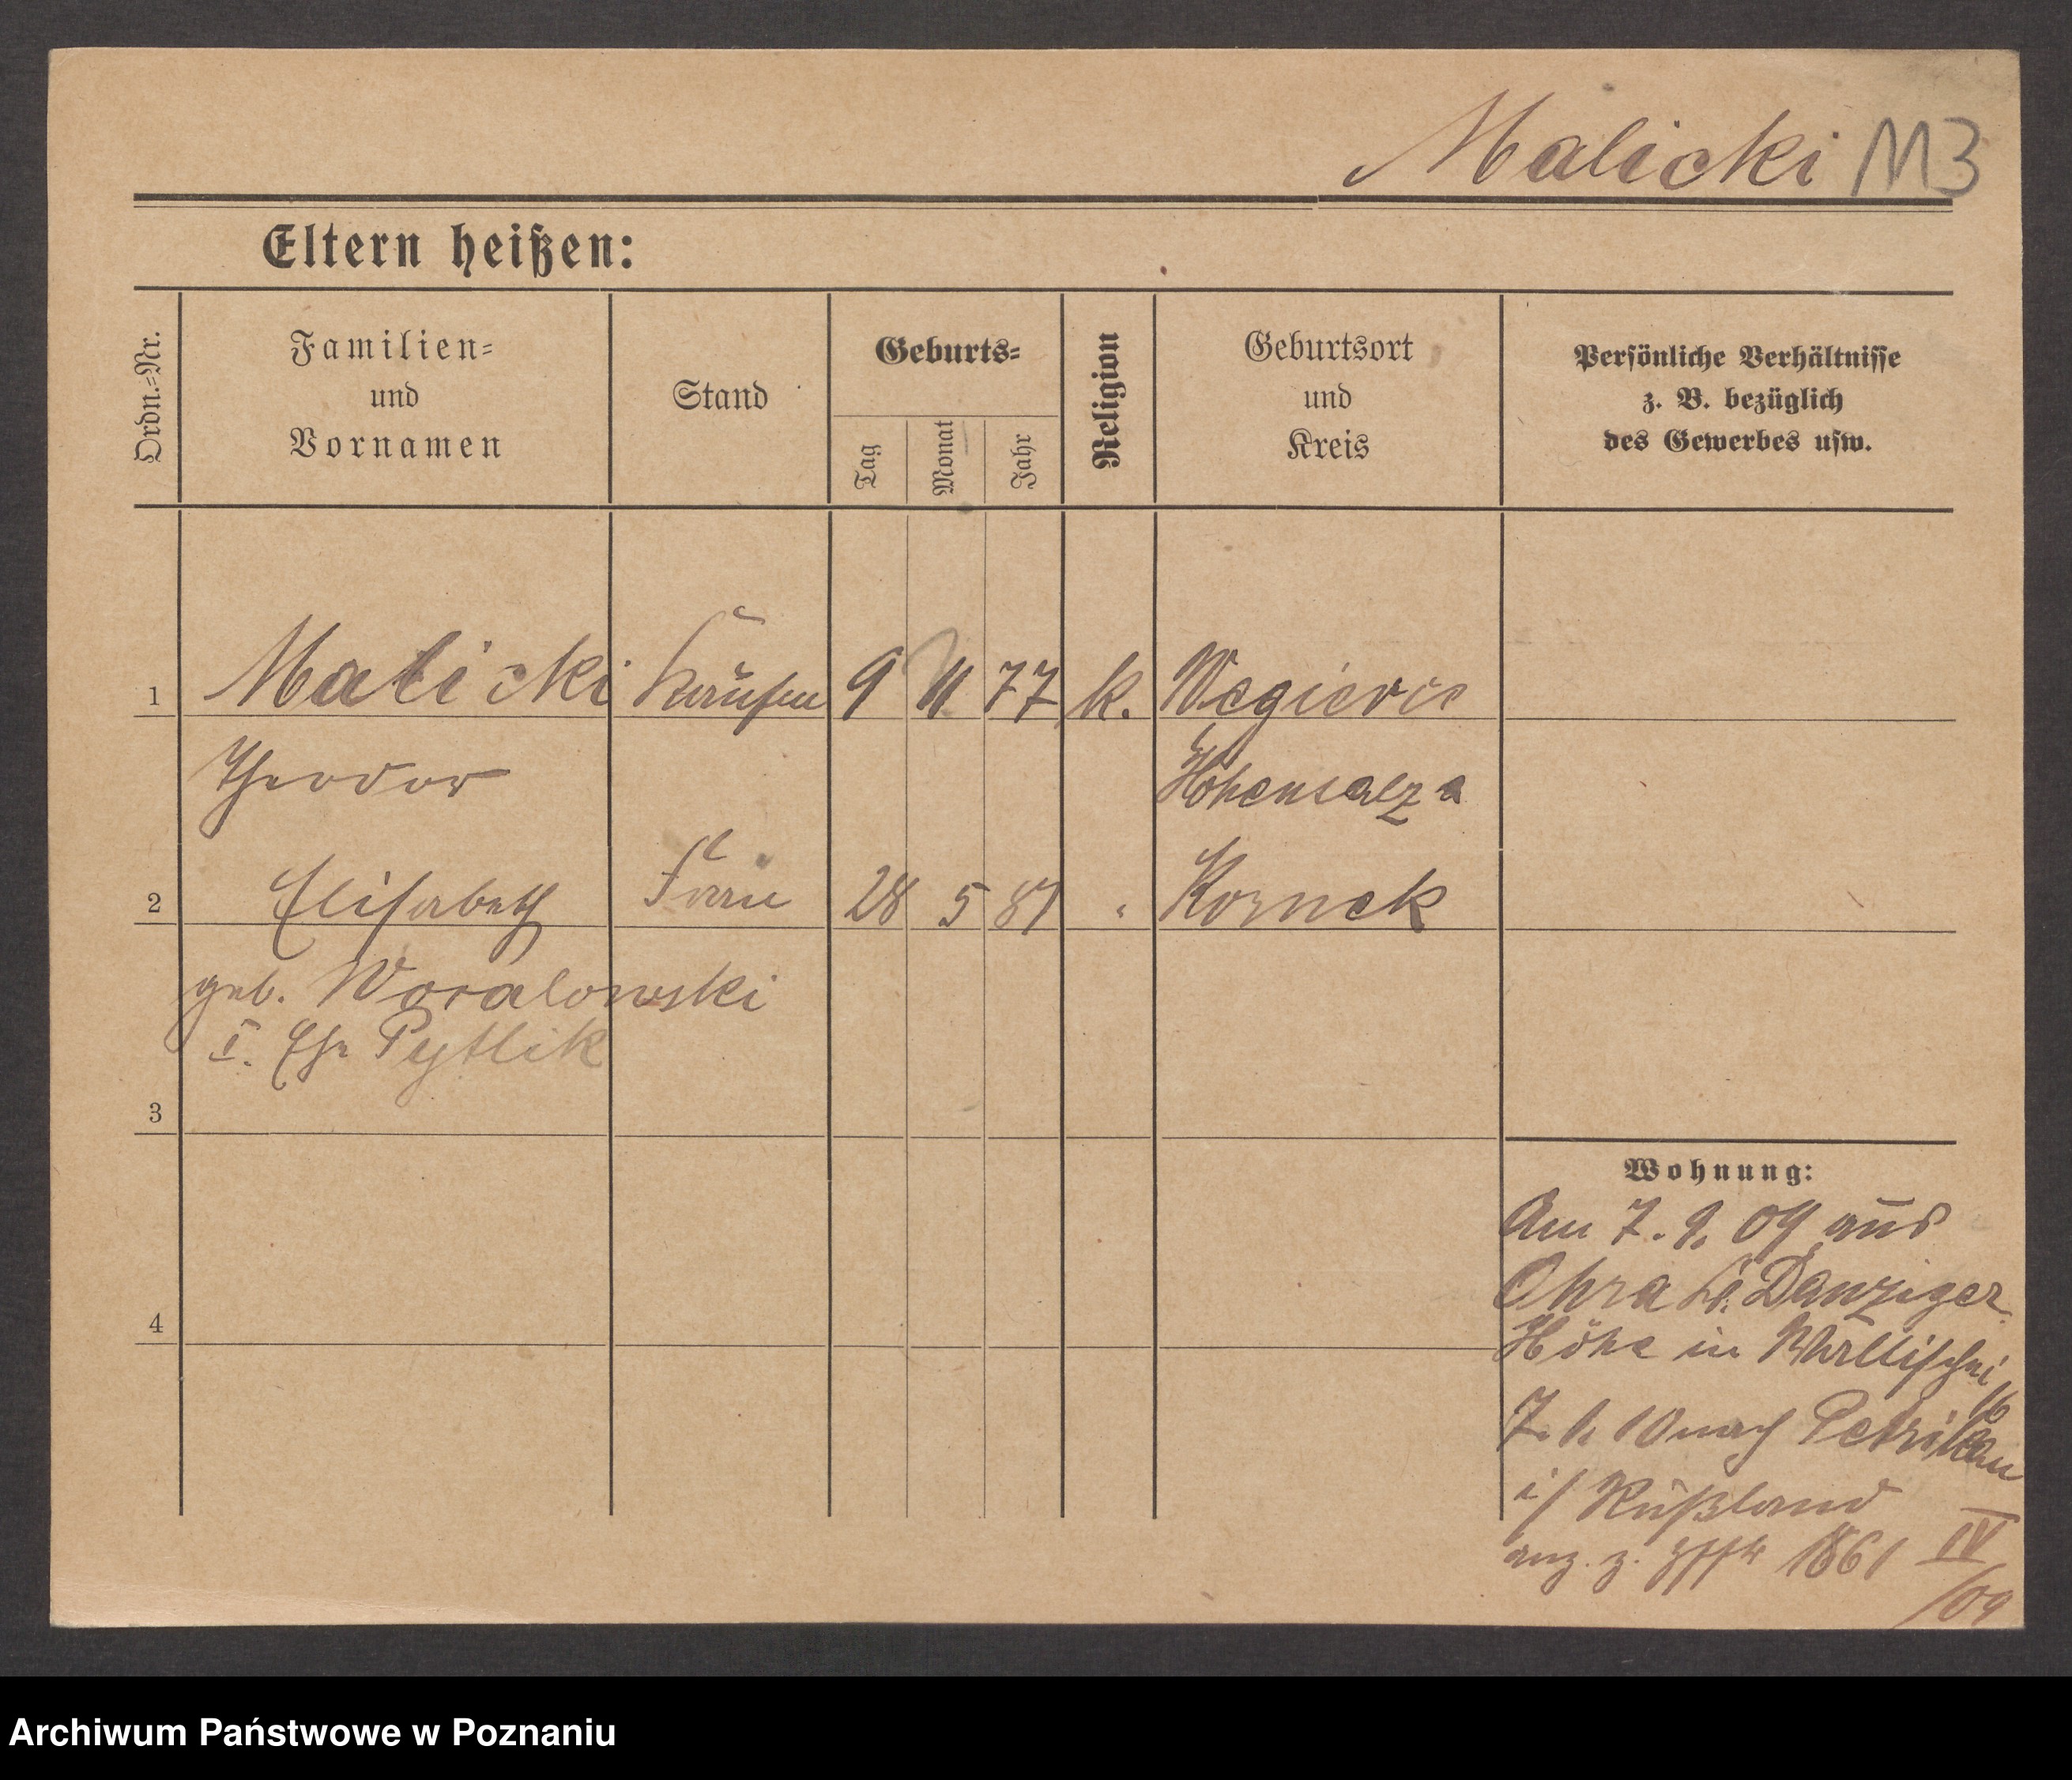 Malicki M3
Eltern heißen:
Ordn.-Nr.
Familien-
und
Vornamen
Stand
Geburts-
Tag
Monat
Jahr
Religion
Geburtsort
und
Kreis
Persönliche Verhältnisse
z. B. bezüglich
des Gewerbes usw.
1 Malicki 9 11 77 k.
Theodor Hohensalza
2 Elisabeth Frau 28 5 " Kornek
geb.
I. Ehe Pytlik
3
4
Wohnung:
Am 7. 9. 09 aus
Ohra Danziger
Höhe in Wallischei
16
7. 1. 10 nach Petrikau
i/ Rußland
1861 IV
/09
Archiwum Państwowe w Poznaniu